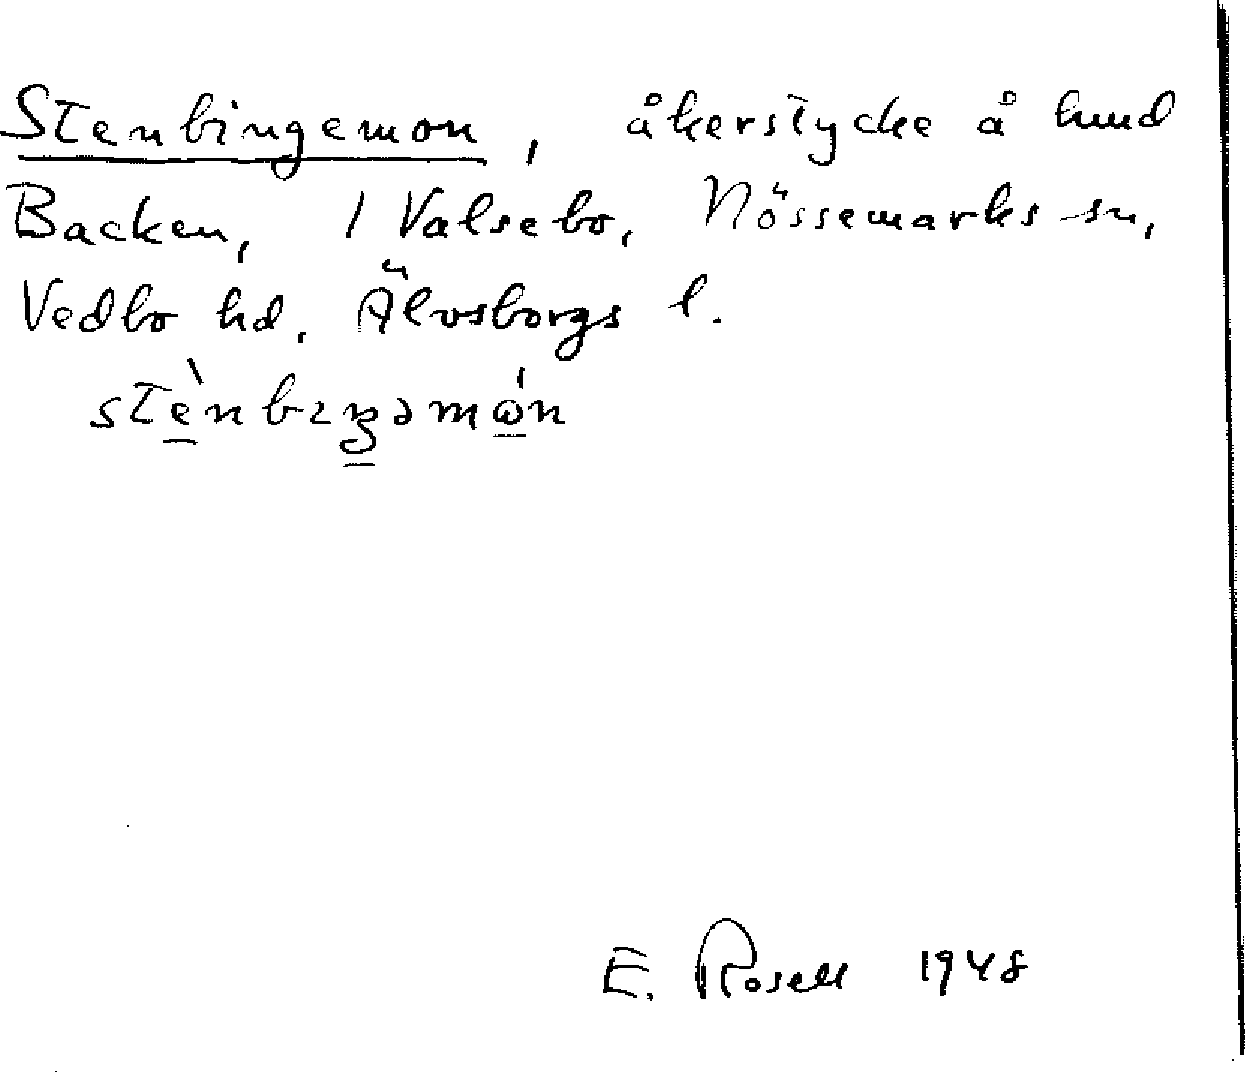 Stenbingemon, åkerstycke å hmd
Backen, 1 Valsebo, Nössemarks sn,
Vedbo hd, Älvsborgs l.
stènbıŋəmón
E. Rosell 1948